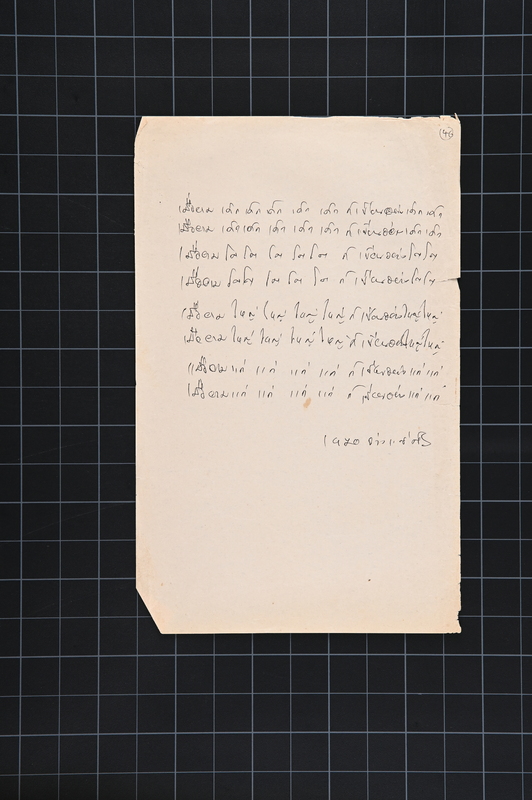 46
เมื่อยาม เด็ก เด็ก เด็ก เด็ก เด็ก ก็เขียนอย่างเด็กเด็ก
เมื่อยาม เด็กเด็ก เด็ก เด็ก เด็ก ก็เขียนอย่างเด็กเด็ก
เมื่อยาม โต โต โต โต โต ก็ เขียนอย่างโตโต
เมื่อยาม โตโต โต โต โต ก็ เขียนอย่างโตโต
เมื่อยาม ใหญ่ ใหญ่ ใหญ่ ใหญ่ ก็ เขียนอย่างใหญ่ใหญ่
เมื่อยาม ใหญ่ ใหญ่ ใหญ่ ใหญ่ ก็ เขียนอย่างใหญ่ใหญ่
เมื่อยาม แก่ แก่ แก่ แก่ ก็ เขียนอย่าง แก่ แก่
เมื่อยาม แก่ แก่ แก่ แก่ ก็ เขียนอย่าง แก่ แก่